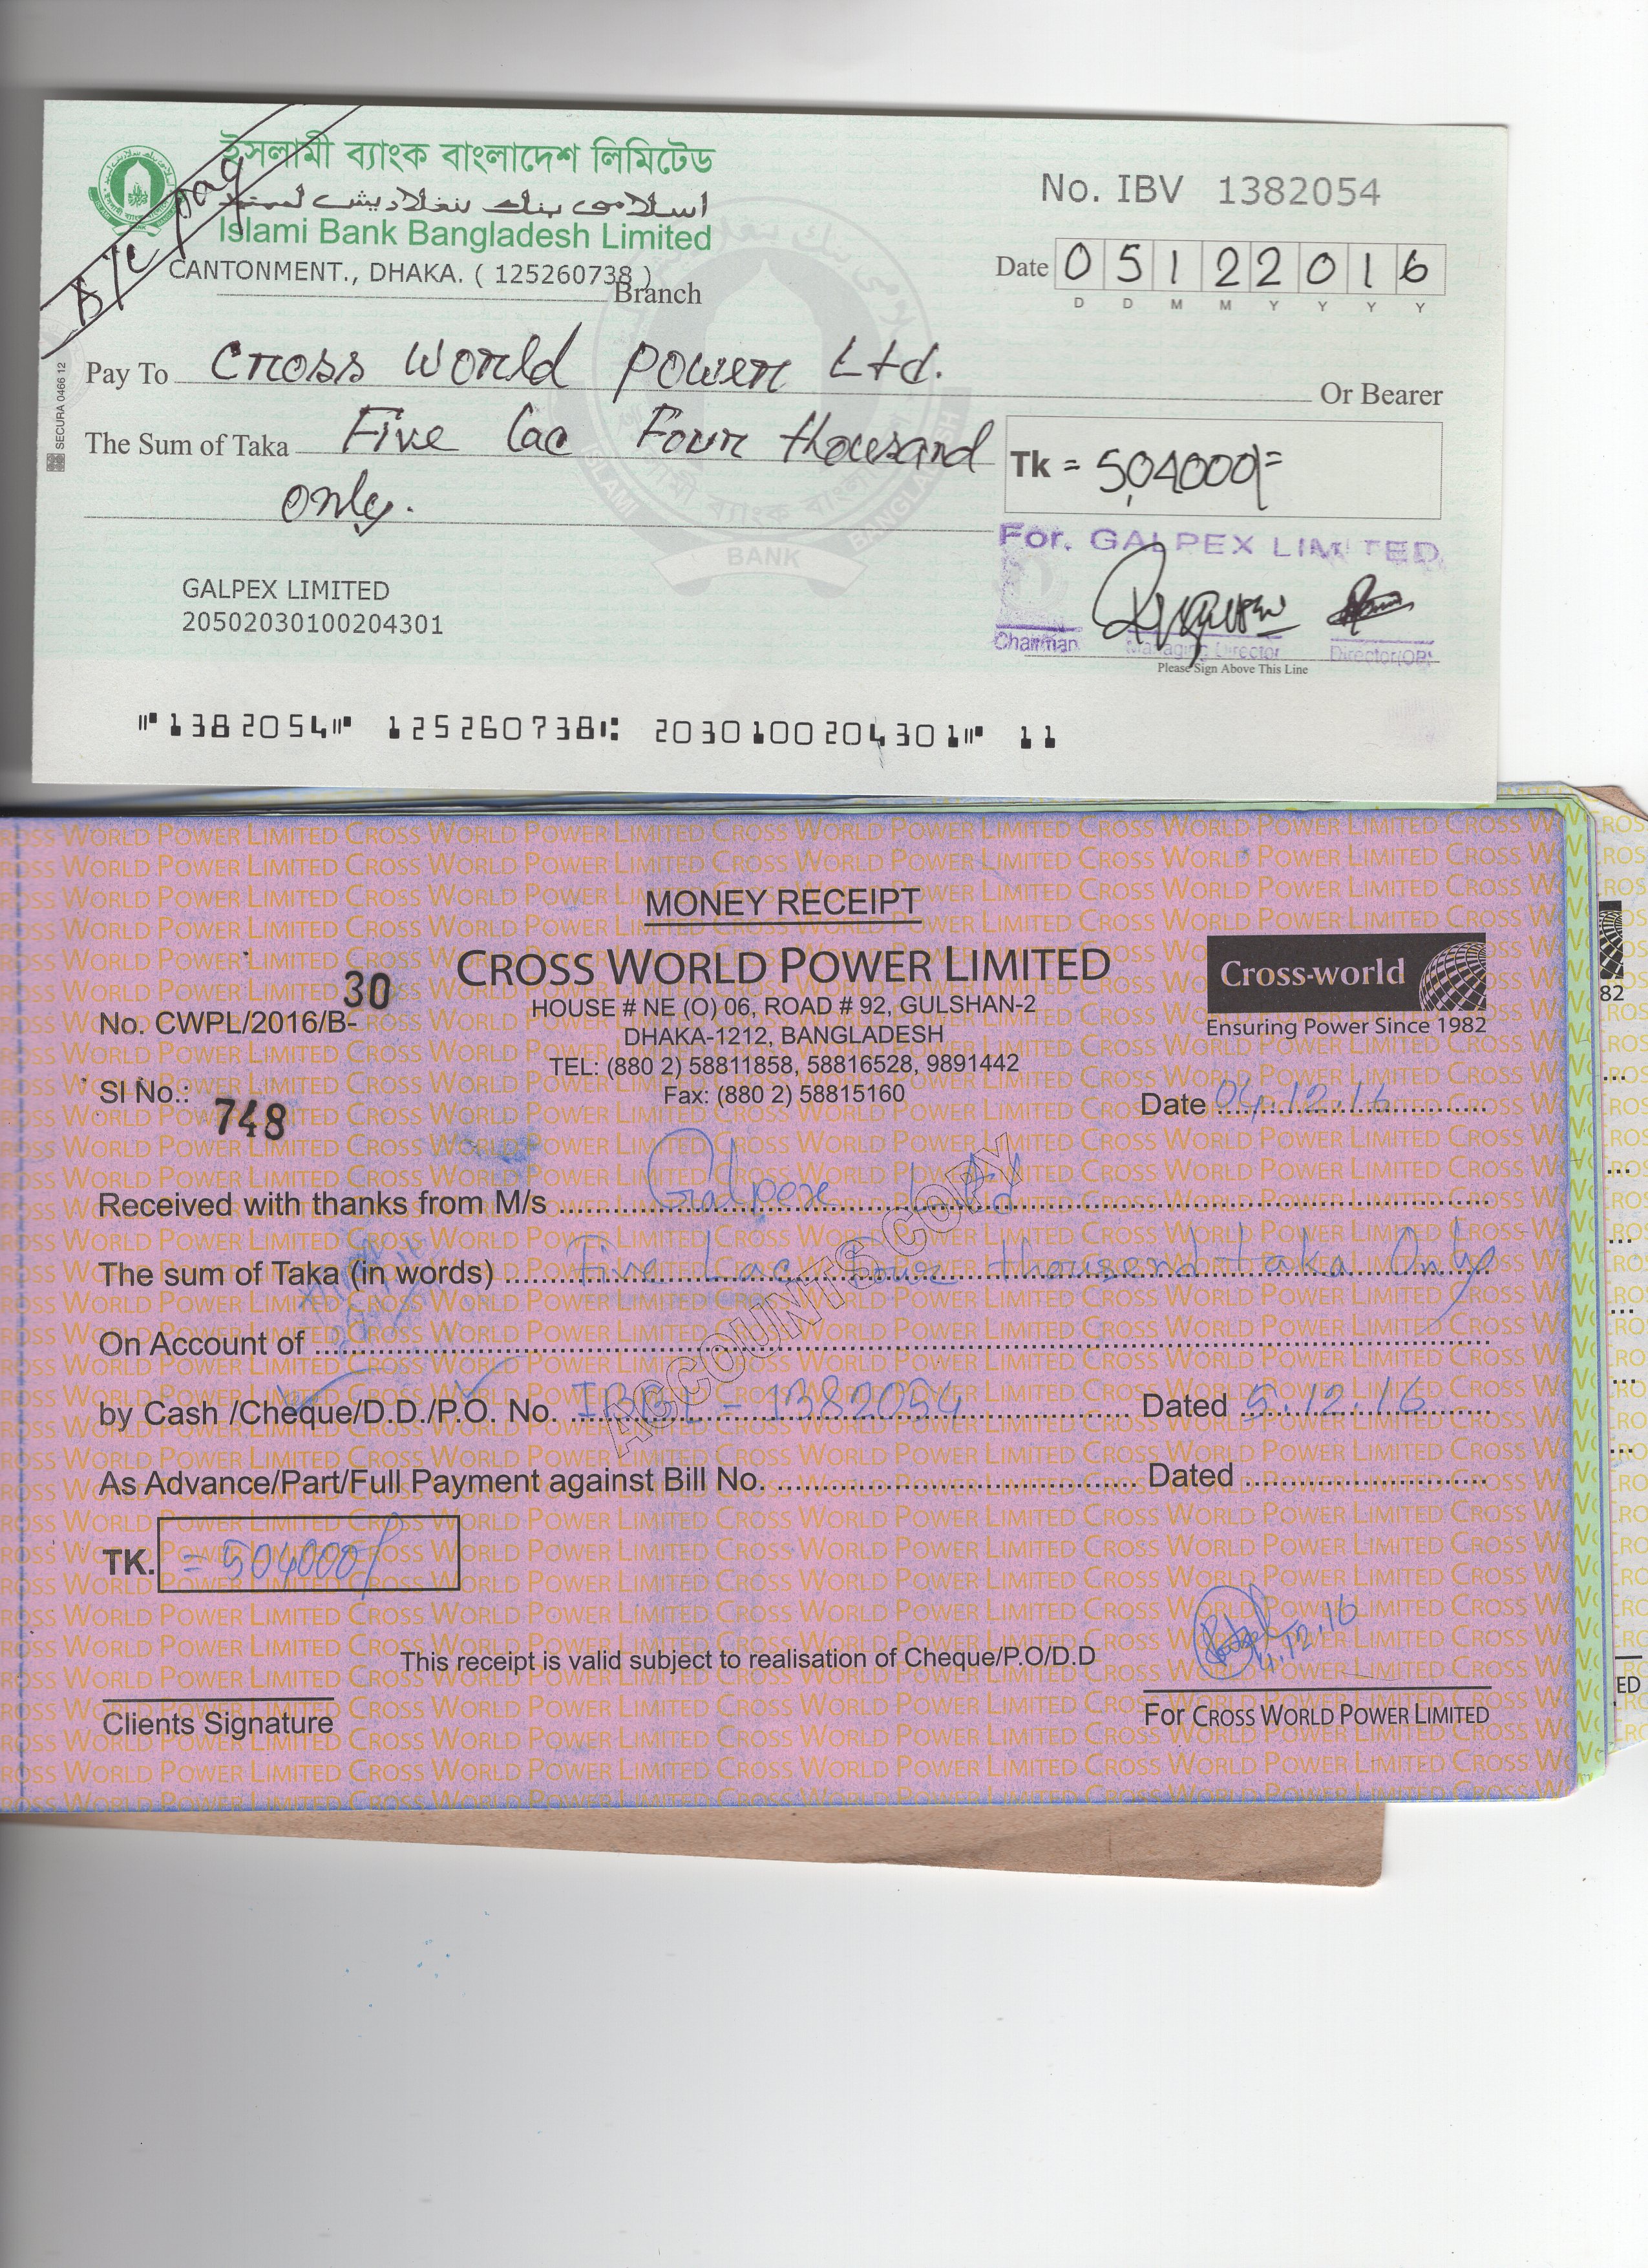 ইসলামী ব্যাংক বাংলাদেশ লিমিটেড
اسلامى بنك بنغلاديش لميتد
Islami Bank Bangladesh Limited
CANTONMENT., DHAKA. ( 125260738 )
Branch
A/C Pay
No. IBV 1382054
Date 05122016
D D M M Y Y Y Y
Pay To Cross World Power Ltd. Or Bearer
The Sum of Taka Five Lac Four thousand
only.
Tk = 5,04000/=
For. GALPEX LIMITED
GALPEX LIMITED
20502030100204301
Chairman Managing Director Director(OP)
Please Sign Above This Line
SECURA 0466 12
ISLAMI BANK BANGLADESH
⑈1382054⑈ 125260738⑆ 2030100204301⑈ 11
MONEY RECEIPT
CROSS WORLD POWER LIMITED
HOUSE # NE (O) 06, ROAD # 92, GULSHAN-2
DHAKA-1212, BANGLADESH
TEL: (880 2) 58811858, 58816528, 9891442
Fax: (880 2) 58815160
Cross-world
Ensuring Power Since 1982
No. CWPL/2016/B-30
Sl No.: 748
Date 04.12.16
Received with thanks from M/s Galpex Ltd
The sum of Taka (in words) Five Lac Four thousend taka Only
On Account of
by Cash /Cheque/D.D./P.O. No. IBBL - 1382054 Dated 5.12.16
As Advance/Part/Full Payment against Bill No. Dated
TK. = 504000/
ACCOUNTS COPY
4.12.16
This receipt is valid subject to realisation of Cheque/P.O/D.D
Clients Signature
For CROSS WORLD POWER LIMITED